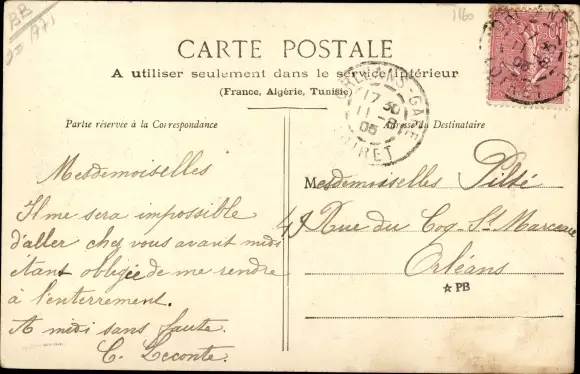 BB
1160
CARTE POSTALE
A utiliser seulement dans le service intérieur
(France, Algérie, Tunisie)
ORLEANS-GARE
17 30
11 -8
05
LOIRET
Partie réservée à la Correspondance
Adresse du Destinataire
Mesdemoiselles
Il me sera impossible
d'aller chez vous avant midi
étant obligée de me rendre
à l'enterrement.
A midi sans faute.
C. Leconte.
Mesdemoiselles Pilté
49 Rue du Coq-St Marceau
Orléans
☆ PB